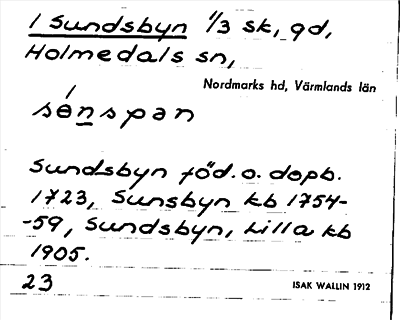 1 Sundsbyn 1/3 sk, gd,
Holmedals sn,
Nordmarks hd, Värmlands län
sénspan
Sundsbyn föd. o. dopb.
1723, Sunsbyn kb 1754-
-59, Sundsbyn, Lilla kb
1905.
23
ISAK WALLIN 1912